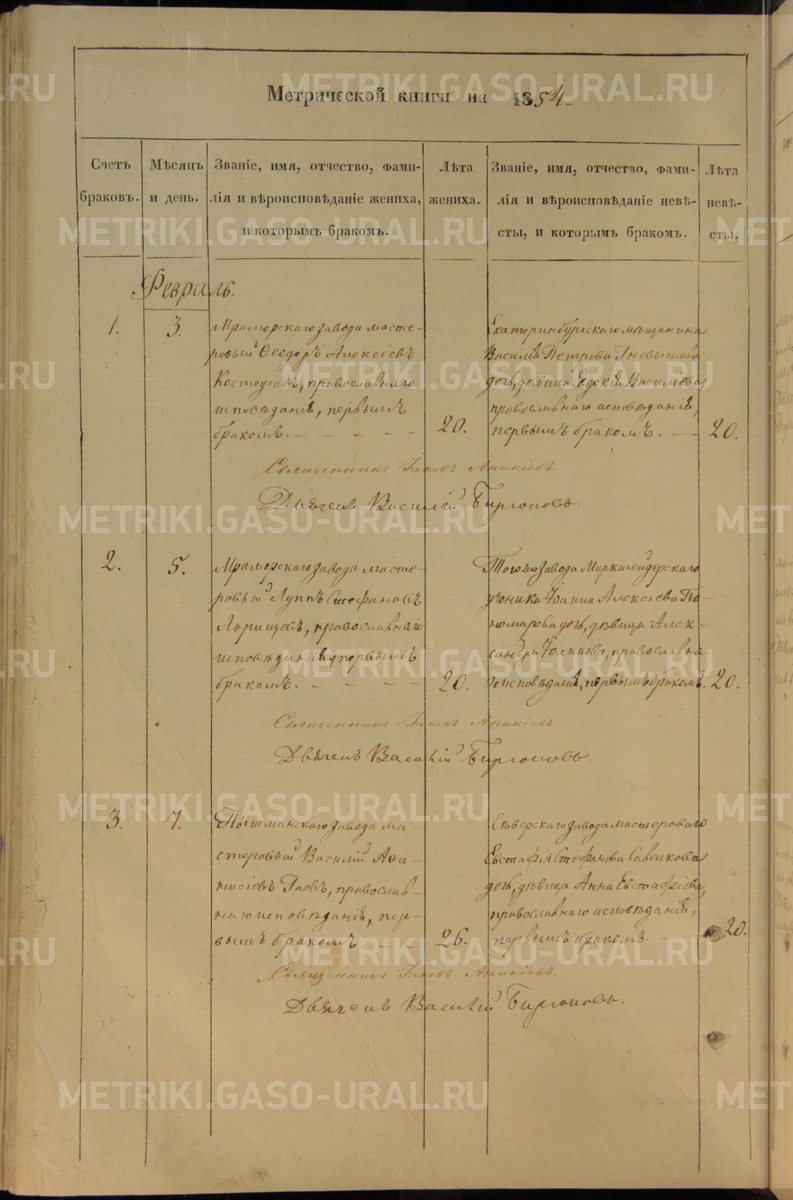 Метрической книги на 1854
Счетъ
браковъ.
Мѣсяцъ
и день.
Званіе, имя, отчество, фами-
лія и вѣроисповѣданіе жениха,
и которымъ бракомъ.
Лѣта
жениха.
Званіе, имя, отчество, фами-
лія и вѣроисповѣданіе невѣ-
сты, и которымъ бракомъ.
Лѣта
невѣ-
сты.
Февраль.
1.
3.
Мраморскаго завода масте-
ровый Ѳеодоръ Алексѣевъ
православнаго
исповѣданія, первымъ
бракомъ.
20.
Екатеринбургскаго мѣщанина
Василія Петрова
дочь, дѣвица Евдокія Васильева,
православнаго исповѣданія,
первымъ бракомъ.
20.
Священникъ Аникіевъ
Дьячекъ Василій
2.
5.
Мраморскаго завода масте-
ровый Луппъ Стефановъ
православнаго
исповѣданія, первымъ
бракомъ.
20.
Того же завода Маркшейдерскаго
ученика Іоанна Алексѣева По-
номарева дочь, дѣвица Алек-
сандра Іоаннова, православна-
го исповѣданія, первымъ бракомъ.
20.
Священникъ Аникіевъ
Дьячекъ Василій
3.
7.
Пышминскаго завода ма-
стеровый Василій Аѳа-
насіевъ православ-
наго исповѣданія, пер-
вымъ бракомъ
26.
Сѣверскаго завода мастероваго
Евстафія Стефанова Савелкова
дочь, дѣвица Анна Евстафіева,
православнаго исповѣданія,
первымъ бракомъ
20.
Священникъ Аникіевъ
Дьячекъ Василій
METRIKI.GASO-URAL.RU